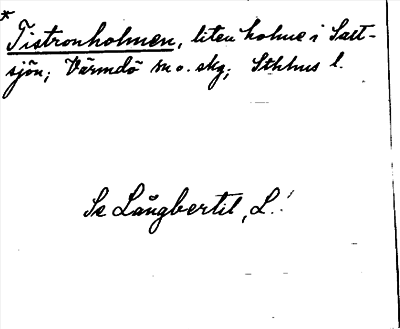 *
Tistronholmen, liten holme i Salt-
sjön; Värmdö sn o. skg; Sthlms l.
Se Långbertil, L.!